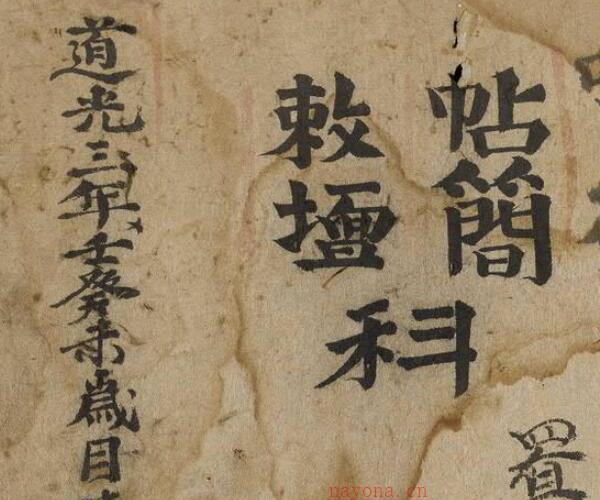 置
帖簡
敕壇
科
道光三年壬癸未歲目
nayona.cn